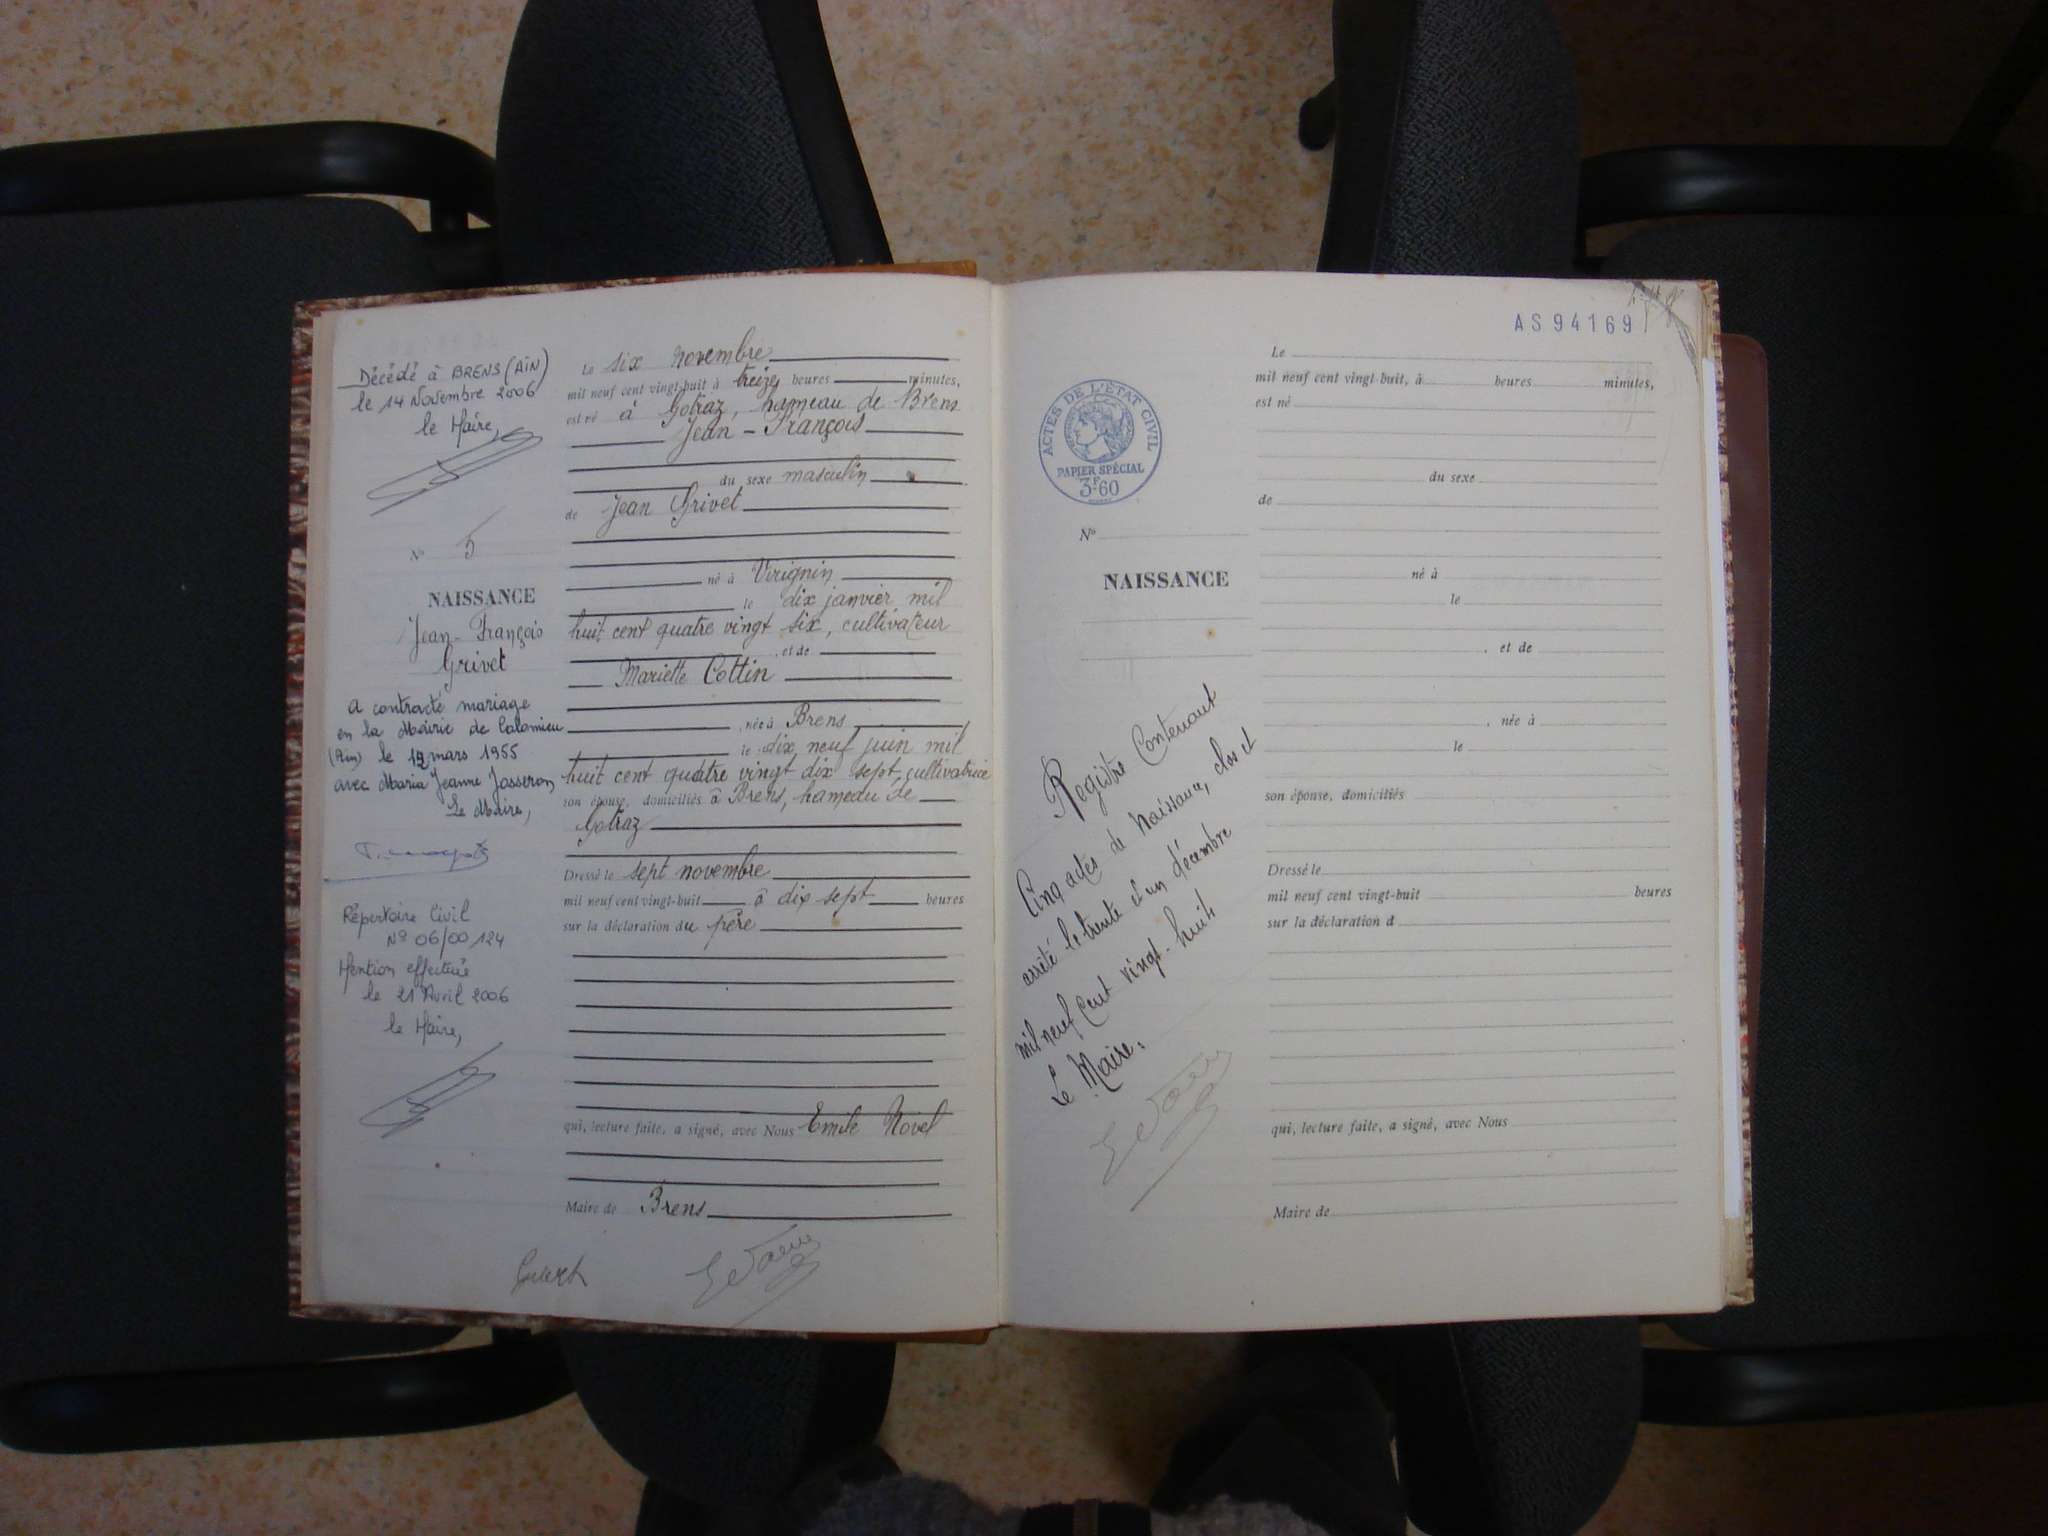 Décédé à BRENS (AIN)
le 14 Novembre 2006
le Maire,
N° 5
NAISSANCE
Jean-François
Grivet
a contracté mariage
en la Mairie de Colomieu
(Ain) le 12 mars 1955
avec Maria Jeanne Josseron
Le Maire,
Répertoire Civil
N° 06/00124
Mention effectuée
le 21 Avril 2006
le Maire,
Le six novembre
mil neuf cent vingt-huit à treize heures minutes,
est né à Gotraz, hameau de Brens
Jean-François
du sexe masculin
de Jean Grivet
né à Virignin
le dix janvier mil
huit cent quatre vingt six, cultivateur
, et de
Mariette Cottin
, née à Brens
le dix neuf juin mil
huit cent quatre vingt dix sept, cultivatrice
son épouse, domiciliés à Brens, hameau de
Gotraz
Dressé le sept novembre
mil neuf cent vingt-huit à dix sept heures
sur la déclaration du père
qui, lecture faite, a signé, avec Nous Emile Novel
Maire de Brens
AS 94169
ACTES DE L'ÉTAT CIVIL
PAPIER SPÉCIAL
3F60
N°
NAISSANCE
Registre Contenant
Cinq actes de Naissance, clos et
arrêté le trente et un décembre
mil neuf cent vingt-huit
Le Maire:
Le
mil neuf cent vingt-huit, à heures minutes,
est né
du sexe
de
né à
le
, et de
, née à
le
son épouse, domiciliés
Dressé le
mil neuf cent vingt-huit heures
sur la déclaration d
qui, lecture faite, a signé, avec Nous
Maire de